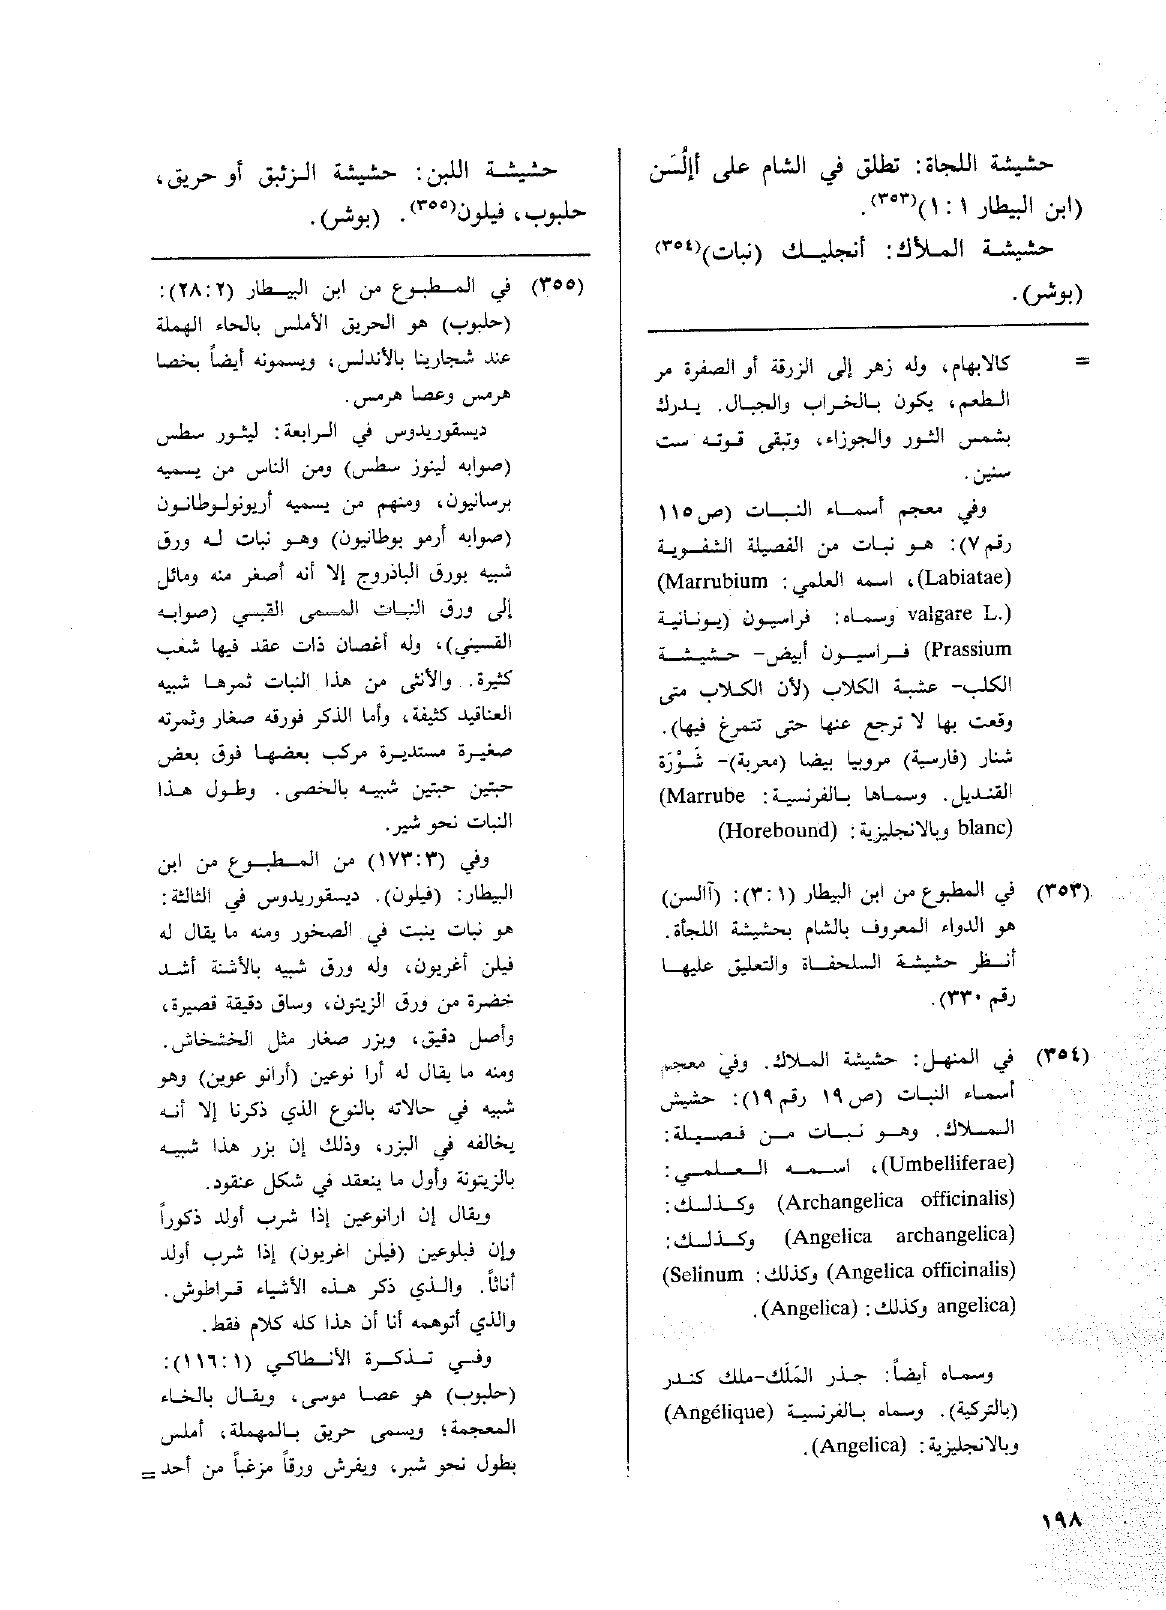 حشيشة اللجاة: تطلق في الشام على أإلُسَن
(ابن البيطار ١ : ١)(٣٥٣).
حشيشة الملاك: أنجليك (نبات)(٣٥٤)
(بوشر).
= كالابهام، وله زهر إلى الزرقة أو الصفرة مر
الطعم، يكون بالخراب والجبال. يدرك
بشمس الثور والجوزاء، وتبقى قوته ست
سنين.
وفي معجم أسماء النبات (ص١١٥
رقم٧): هو نبات من الفصيلة الشفوية
(Labiatae)، اسمه العلمي: (Marrubium
valgare L.) وسماه: فراسيون (يونانية
Prassium) فراسيون أبيض- حشيشة
الكلب- عشبة الكلاب (لأن الكلاب متى
وقعت بها لا ترجع عنها حتى تتمرغ فيها).
شنار (فارسية) مروبيا بيضا (معربة)- شَوْرَة
القنديل. وسماها بالفرنسية: (Marrube
blanc) وبالانجليزية: (Horebound)
(٣٥٣) في المطبوع من ابن البيطار (٣:١): (آالسن)
هو الدواء المعروف بالشام بحشيشة اللجأة.
أنظر حشيشة السلحفاة والتعليق عليها
رقم ٣٣٠).
(٣٥٤) في المنهل: حشيشة الملاك. وفي معجم
أسماء النبات (ص١٩ رقم١٩): حشيش
الملاك. وهو نبات من فصيلة:
(Umbelliferae)، اسمه العلمي:
(Archangelica officinalis) وكذلك:
(Angelica archangelica) وكذلك:
(Angelica officinalis) وكذلك: (Selinum
angelica) وكذلك: (Angelica).
وسماه أيضاً: جذر المَلَك-ملك كندر
(بالتركية). وسماه بالفرنسية (Angélique)
وبالانجليزية: (Angelica).
حشيشة اللبن: حشيشة الزئبق أو حريق،
حلبوب، فيلون(٣٥٥). (بوشر).
(٣٥٥) في المطبوع من ابن البيطار (٢٨:٢):
(حلبوب) هو الحريق الأملس بالحاء الهملة
عند شجارينا بالأندلس، ويسمونه أيضاً بخصا
هرمس وعصا هرمس.
ديسقوريدوس في الرابعة: ليثور سطس
(صوابه لينوز سطس) ومن الناس من يسميه
برسانيون، ومنهم من يسميه أريونولوطانون
(صوابه أرمو بوطانيون) وهو نبات له ورق
شبيه بورق الباذروج إلا أنه أصفر منه ومائل
إلى ورق النبات المسمى القبسي (صوابه
القسيني)، وله أغصان ذات عقد فيها شعب
كثيرة. والأنثى من هذا النبات ثمرها شبيه
العناقيد كثيفة، وأما الذكر فورقه صغار وثمرته
صغيرة مستديرة مركب بعضها فوق بعض
حبتين حبتين شبيه بالخصى. وطول هذا
النبات نحو شبر.
وفي (١٧٣:٣) من المطبوع من ابن
البيطار: (فيلون). ديسقوريدوس في الثالثة:
هو نبات ينبت في الصخور ومنه ما يقال له
فيلن أغريون، وله ورق شبيه بالأشنة أشد
خضرة من ورق الزيتون، وساق دقيقة قصيرة،
وأصل دقيق، وبزر صغار مثل الخشخاش.
ومنه ما يقال له أرا نوعين (أرانو عوين) وهو
شبيه في حالاته بالنوع الذي ذكرنا إلا أنه
يخالفه في البزر، وذلك إن بزر هذا شبيه
بالزيتونة وأول ما ينعقد في شكل عنقود.
ويقال إن ارانوعين إذا شرب أولد ذكوراً
وإن فبلوعين (فيلن اغريون) إذا شرب أولد
أناثاً. والذي ذكر هذه الأشياء قراطوش.
والذي أتوهمه أنا أن هذا كله كلام فقط.
وفي تذكرة الأنطاكي (١١٦:١):
(حلبوب) هو عصا موسى، ويقال بالخاء
المعجمة؛ ويسمى حريق بالمهملة، أملس
بطول نحو شبر، ويفرش ورقاً مزغباً من أحد =
١٩٨